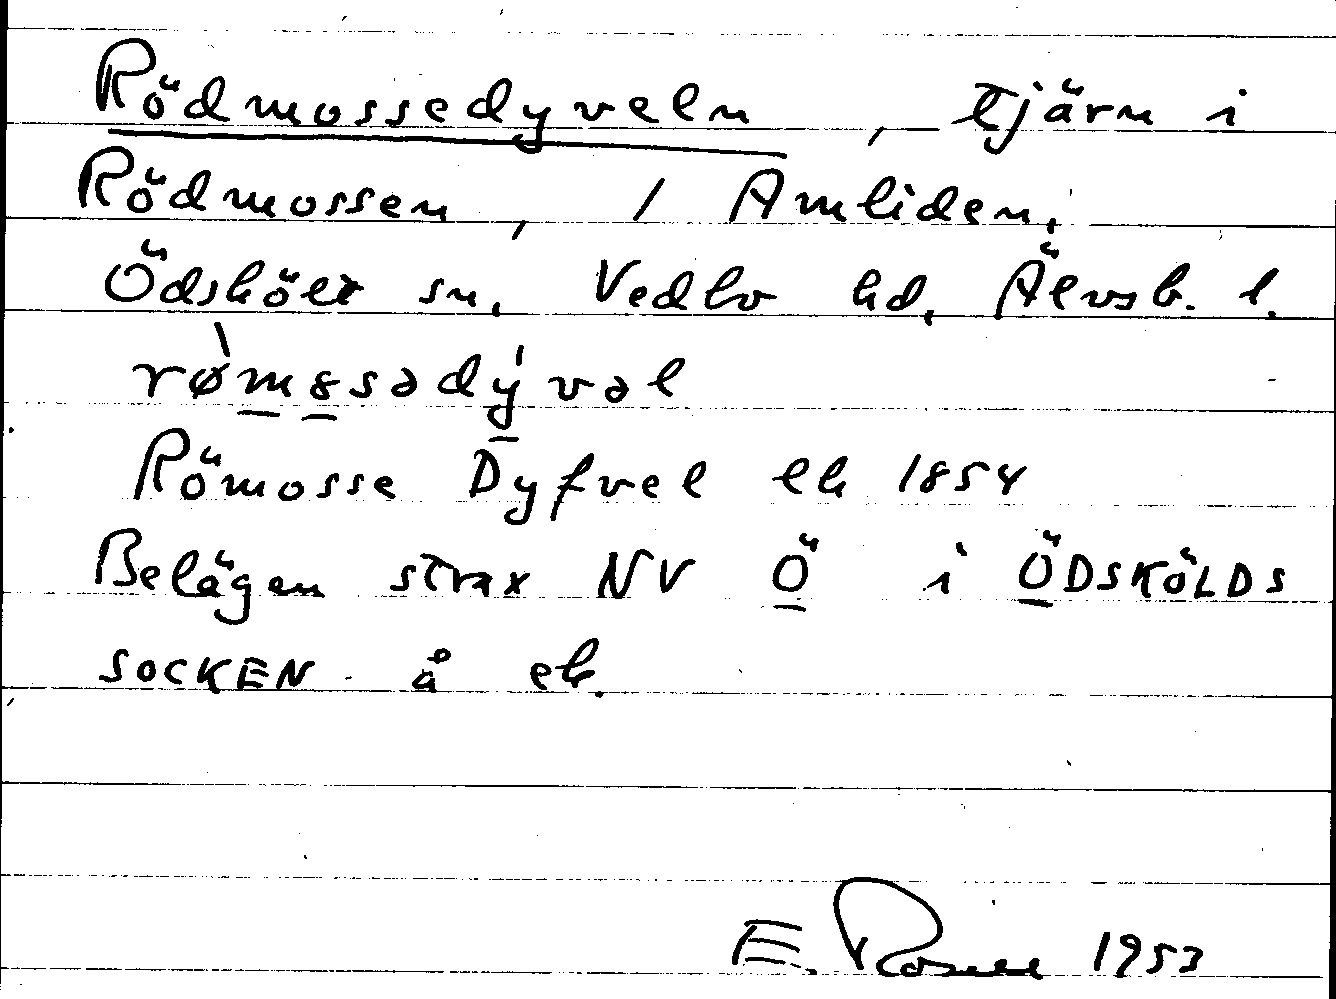 Rödmossedyveln, tjärn i
Rödmossen, / Amliden,
Ödskölt sn, Vedbo hd, Älvsb. l.
rø̀mꞷsədy̍vəl
Römosse Dyfvel ek 1854
Belägen strax NV Ö i ÖDSKÖLDS
SOCKEN å ek.
E. Rosell 1953